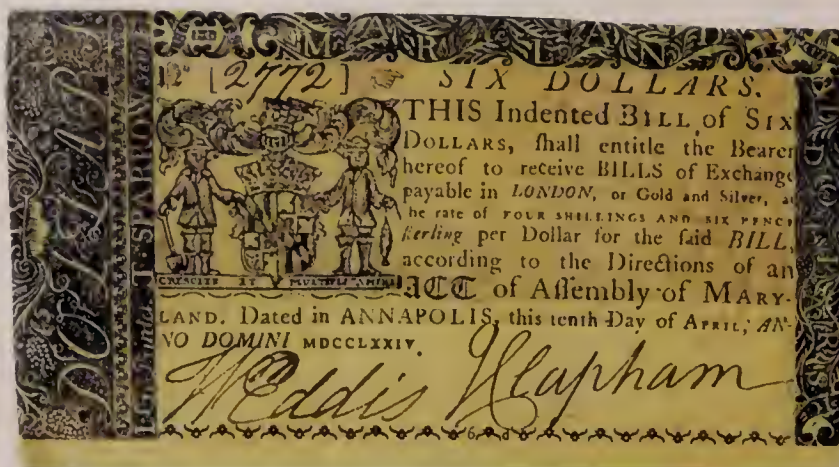 MARYLAND
Nº [2772] SIX DOLLARS.
THIS Indented BILL of SIX
DOLLARS, ſhall entitle the Bearer
hereof to receive BILLS of Exchange
payable in LONDON, or Gold and Silver, at
he rate of FOUR SHILLINGS AND SIX PENCE
ſterling per Dollar for the ſaid BILL,
according to the Directions of an
CRESCITE ET MULTIPLICAMINI
ACT of Aſſembly of MARY-
LAND. Dated in ANNAPOLIS, this tenth Day of APRIL, AN-
NO DOMINI MDCCLXXIV.
W Eddis J Clapham
DOLLARS
T. SPARROW